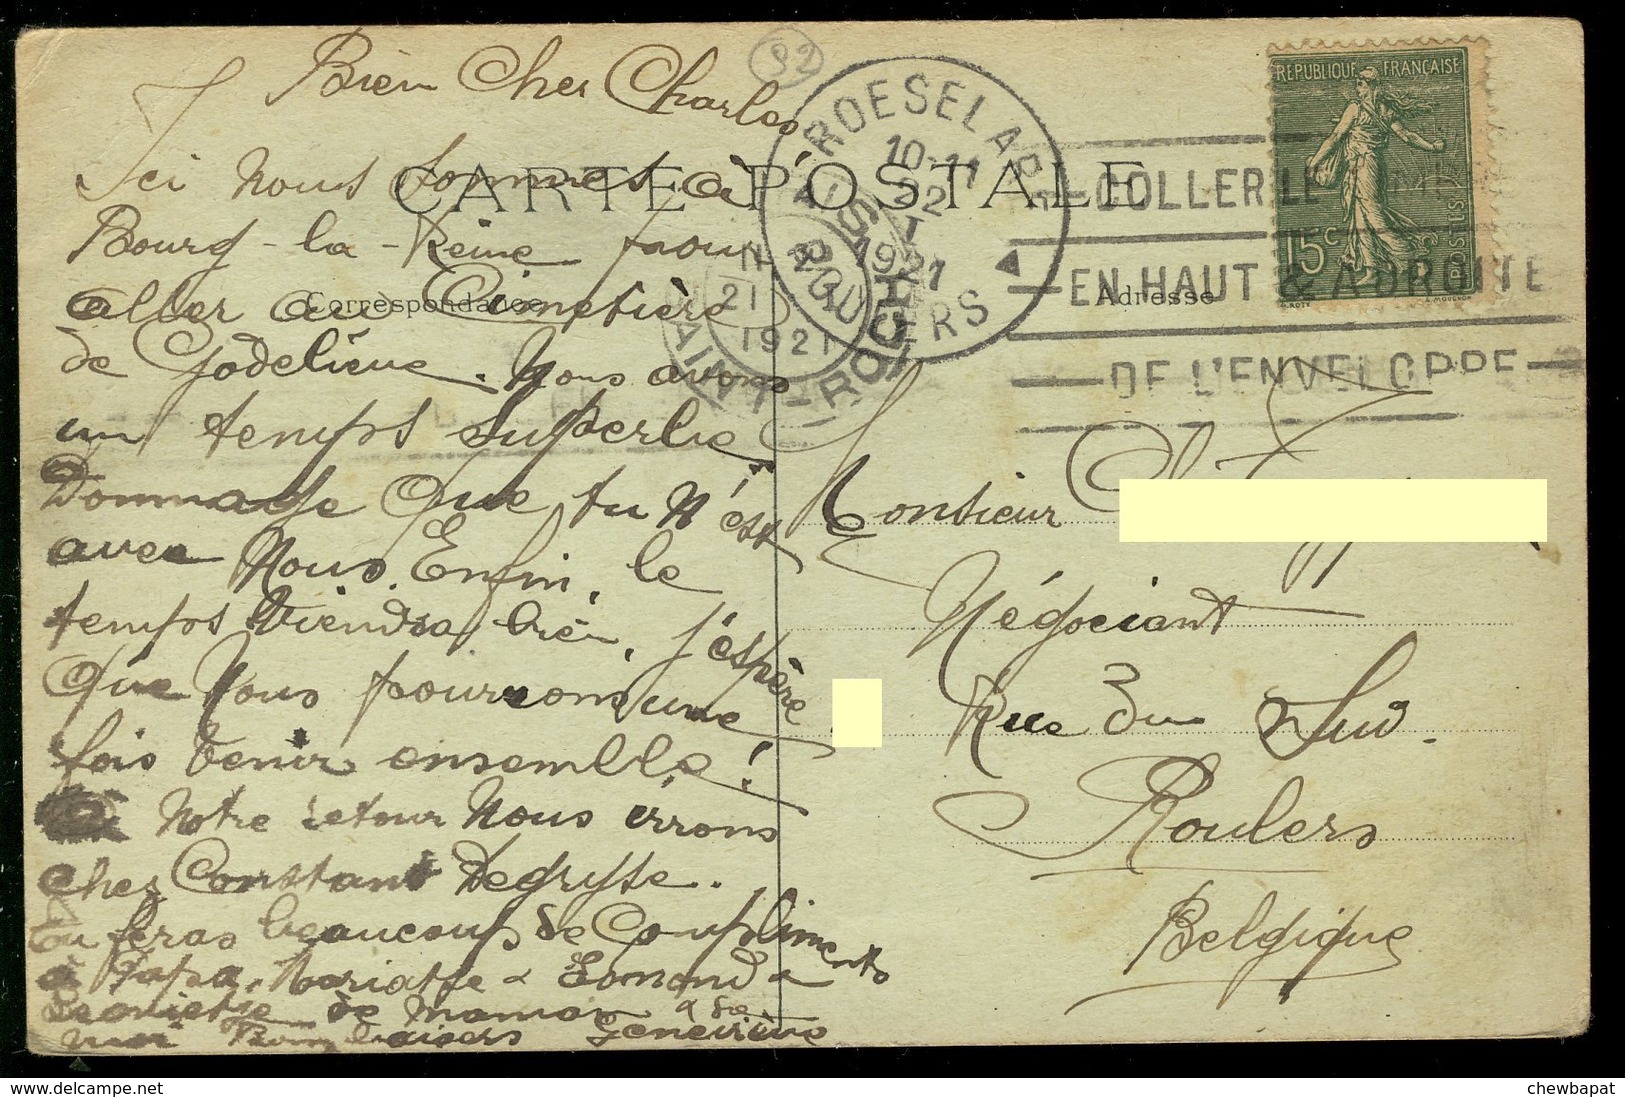 92
Bien Cher Charles
Ici nous sommes à
Bourg-la-Reine pour
aller au Cimetière
de Godelieve. Nous avons
un temps superbe
Dommage que tu n'est
avec nous. Enfin, le
temps viendra bien, j'espère
que nous pourrons une
fois venir ensemble!
notre retour nous irrons
chez Constant Degryse.
Tu feras beaucoup de Compliments
à Papa, Mariatje & Edmond &
de maman & de
moi Bons baisers Geneviève
CARTE POSTALE
Correspondance
Adresse
ROESELARE
10-11
22
I
1921
ROULERS
21
1921
SAINT-ROCH
COLLER LE TIMBRE
EN HAUT & A DROITE
DE L'ENVELOPPE
REPUBLIQUE FRANÇAISE
15c
POSTES
O. ROTY
Monsieur
Négociant
Rue du Sud
Roulers
Belgique
chewbapat